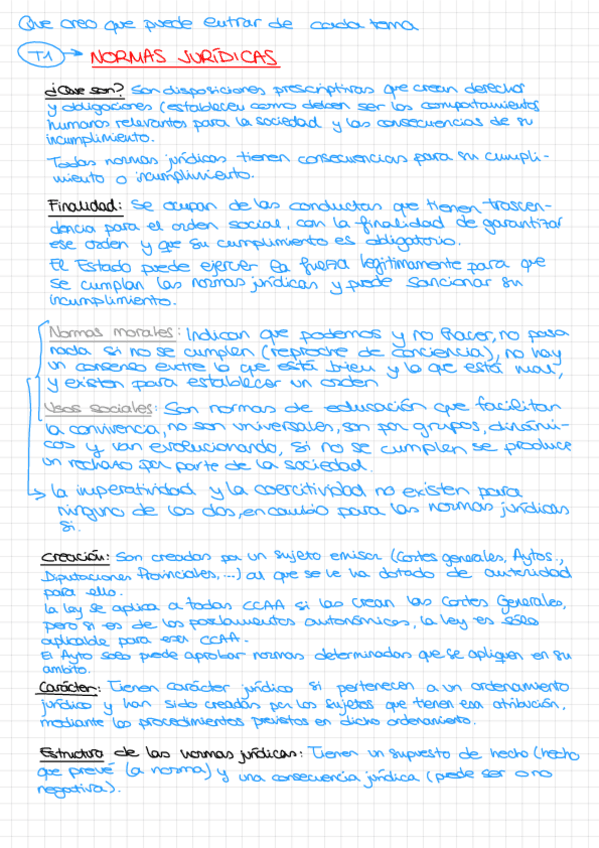 Que creo que puede entrar de cada tema
T1 → NORMAS JURÍDICAS
¿Que son? Son disposiciones prescriptivas que crean derechos
y obligaciones (establecen como deben ser los comportamientos
humanos relevantes para la sociedad y las consecuencias de su
incumplimiento.
Todas normas jurídicas tienen consecuencias para su cumpli-
miento o incumplimiento.
Finalidad: Se ocupan de las conductas que tienen trascen-
dencia para el orden social, con la finalidad de garantizar
ese orden y que su cumplimiento es obligatorio.
El Estado puede ejercer la fuerza legítimamente para que
se cumplan las normas jurídicas y puede sancionar su
incumplimiento.
Normas morales: Indican que podemos y no hacer, no pasa
nada si no se cumplen (reproche de conciencia), no hay
un consenso entre lo que está bien y lo que está mal,
y existen para establecer un orden
Usos sociales: Son normas de educación que facilitan
la convivencia, no son universales, son por grupos, dinámi-
cos y van evolucionando, si no se cumplen se produce
un rechazo por parte de la sociedad.
→ la imperatividad y la coercitividad no existen para
ninguno de los dos, en cambio para las normas jurídicas
si.
Creación: Son creadas por un sujeto emisor (Cortes generales, Aytos.,
Diputaciones Provinciales, ...) al que se le ha dotado de autoridad
para ello.
La ley se aplica a todas CCAA si las crean las Cortes Generales,
pero si es de los parlamentos autonómicos, la ley es solo
aplicable para esa CCAA.
El Ayto solo puede aprobar normas determinadas que se apliquen en su
ambito.
Carácter: Tienen carácter jurídico si pertenecen a un ordenamiento
jurídico y han sido creadas por los sujetos que tienen esa atribución,
mediante los procedimientos previstos en dicho ordenamiento.
Estructura de las normas jurídicas: Tienen un supuesto de hecho (hecho
que prevé la norma) y una consecuencia jurídica (puede ser o no
negativa).